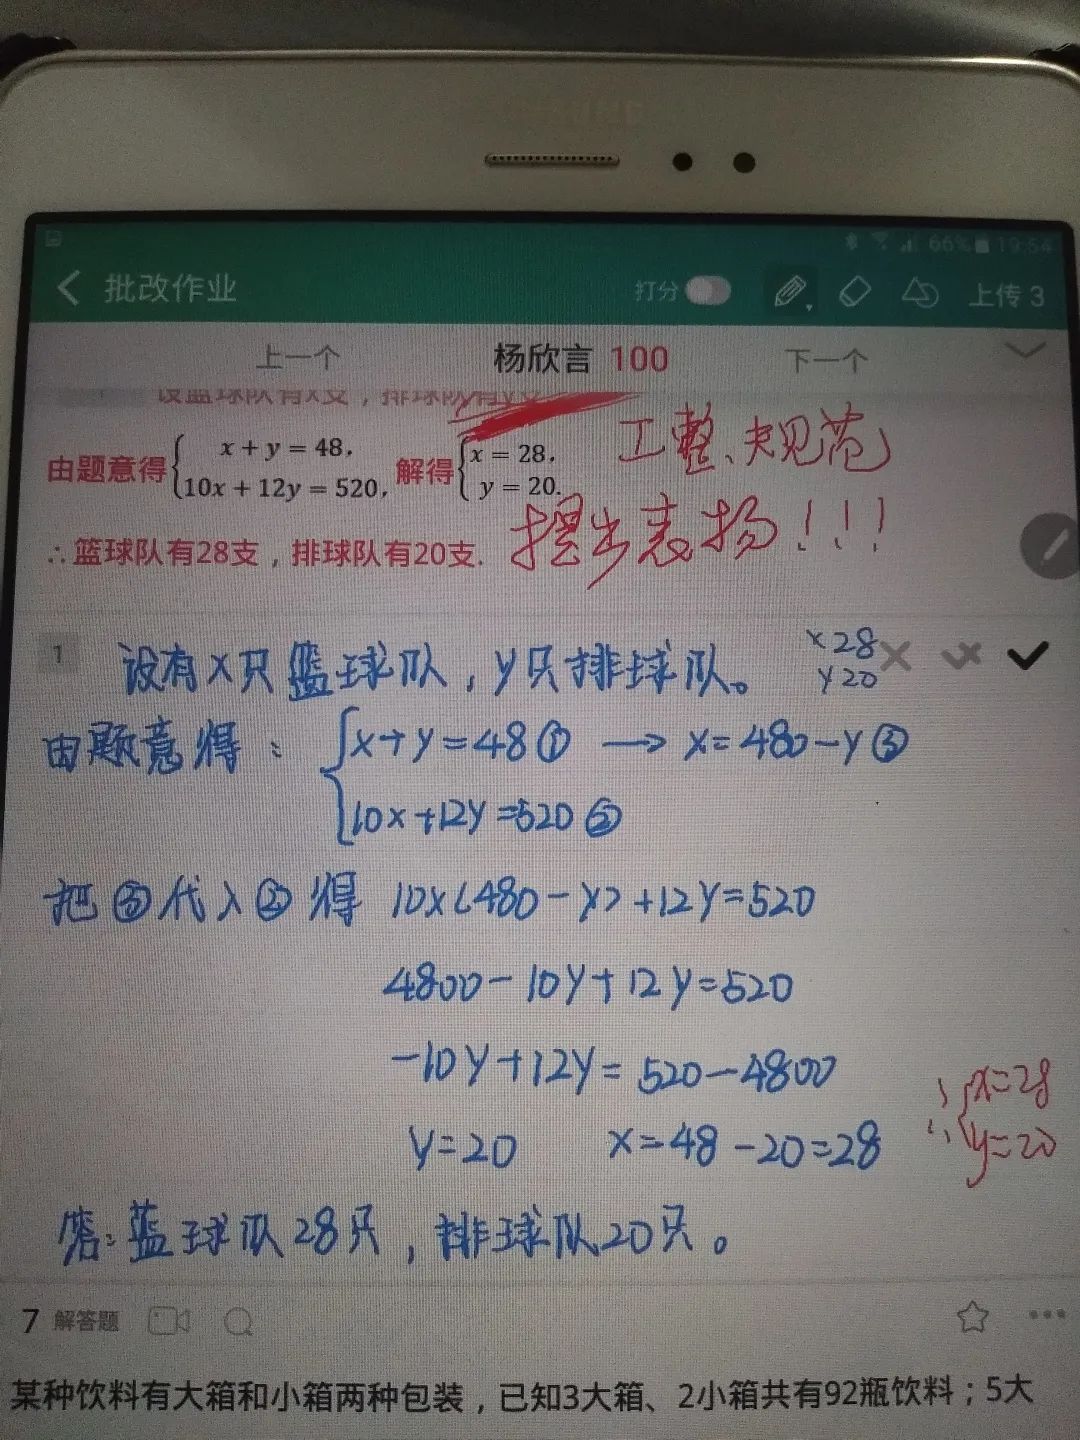 66% 19:54
批改作业 打分 上传 3
上一个 杨欣言 100 下一个
设篮球队有x支，排球队有y支
由题意得{x + y = 48, 10x + 12y = 520, 解得{x = 28, y = 20.
工整、规范
∴篮球队有28支，排球队有20支.
提出表扬！！！
1 设有X只篮球队，y只排球队。
X 28
y 20
由题意得：{x+y=48① → x=480-y③
10x+12y=520②
把③代入②得 10x(480-y)+12y=520
4800-10y+12y=520
-10y+12y=520-4800
y=20 x=48-20=28
∴{x=28
y=20
答：蓝球队28只，排球队20只。
7 解答题
某种饮料有大箱和小箱两种包装，已知3大箱、2小箱共有92瓶饮料；5大